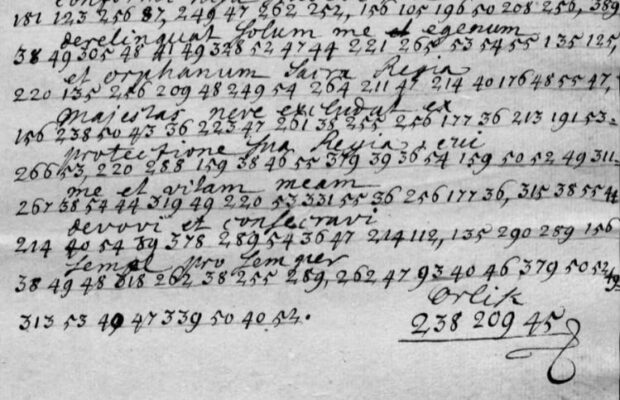 181 123 256 87, 249 47 262 252, 156 105 196 50 208 256, 389
derelinquat solum me et egenum
38 49 305 48 41 49 328 52 47 44 221 265 53 54 55 135 125,
et orphanum Sacra Regia
220 135 256 209 48 249 54 264 211 47 214 40 176 48 55 47,
Majestas neve excludat ex
156 238 50 43 36 223 47 261 38 255 256 177 36 213 191 53-
protectione Sua Regia, cui
266 53, 220 288 159 38 46 55 379 39 36 54 159 50 52 49 311-
me et vitam meam
267 38 54 44 319 49 220 53 331 55 36 256 177 36, 315 38 55 44
devovi et consecravi
214 40 54 89 378 289 54 36 47 214 112, 135 290 289 156
semel pro semper
38 49 48 318 262 38 255 289, 262 47 93 40 46 379 50 52 49
Orlik
313 53 49 47 339 50 40 52.
238 209 45